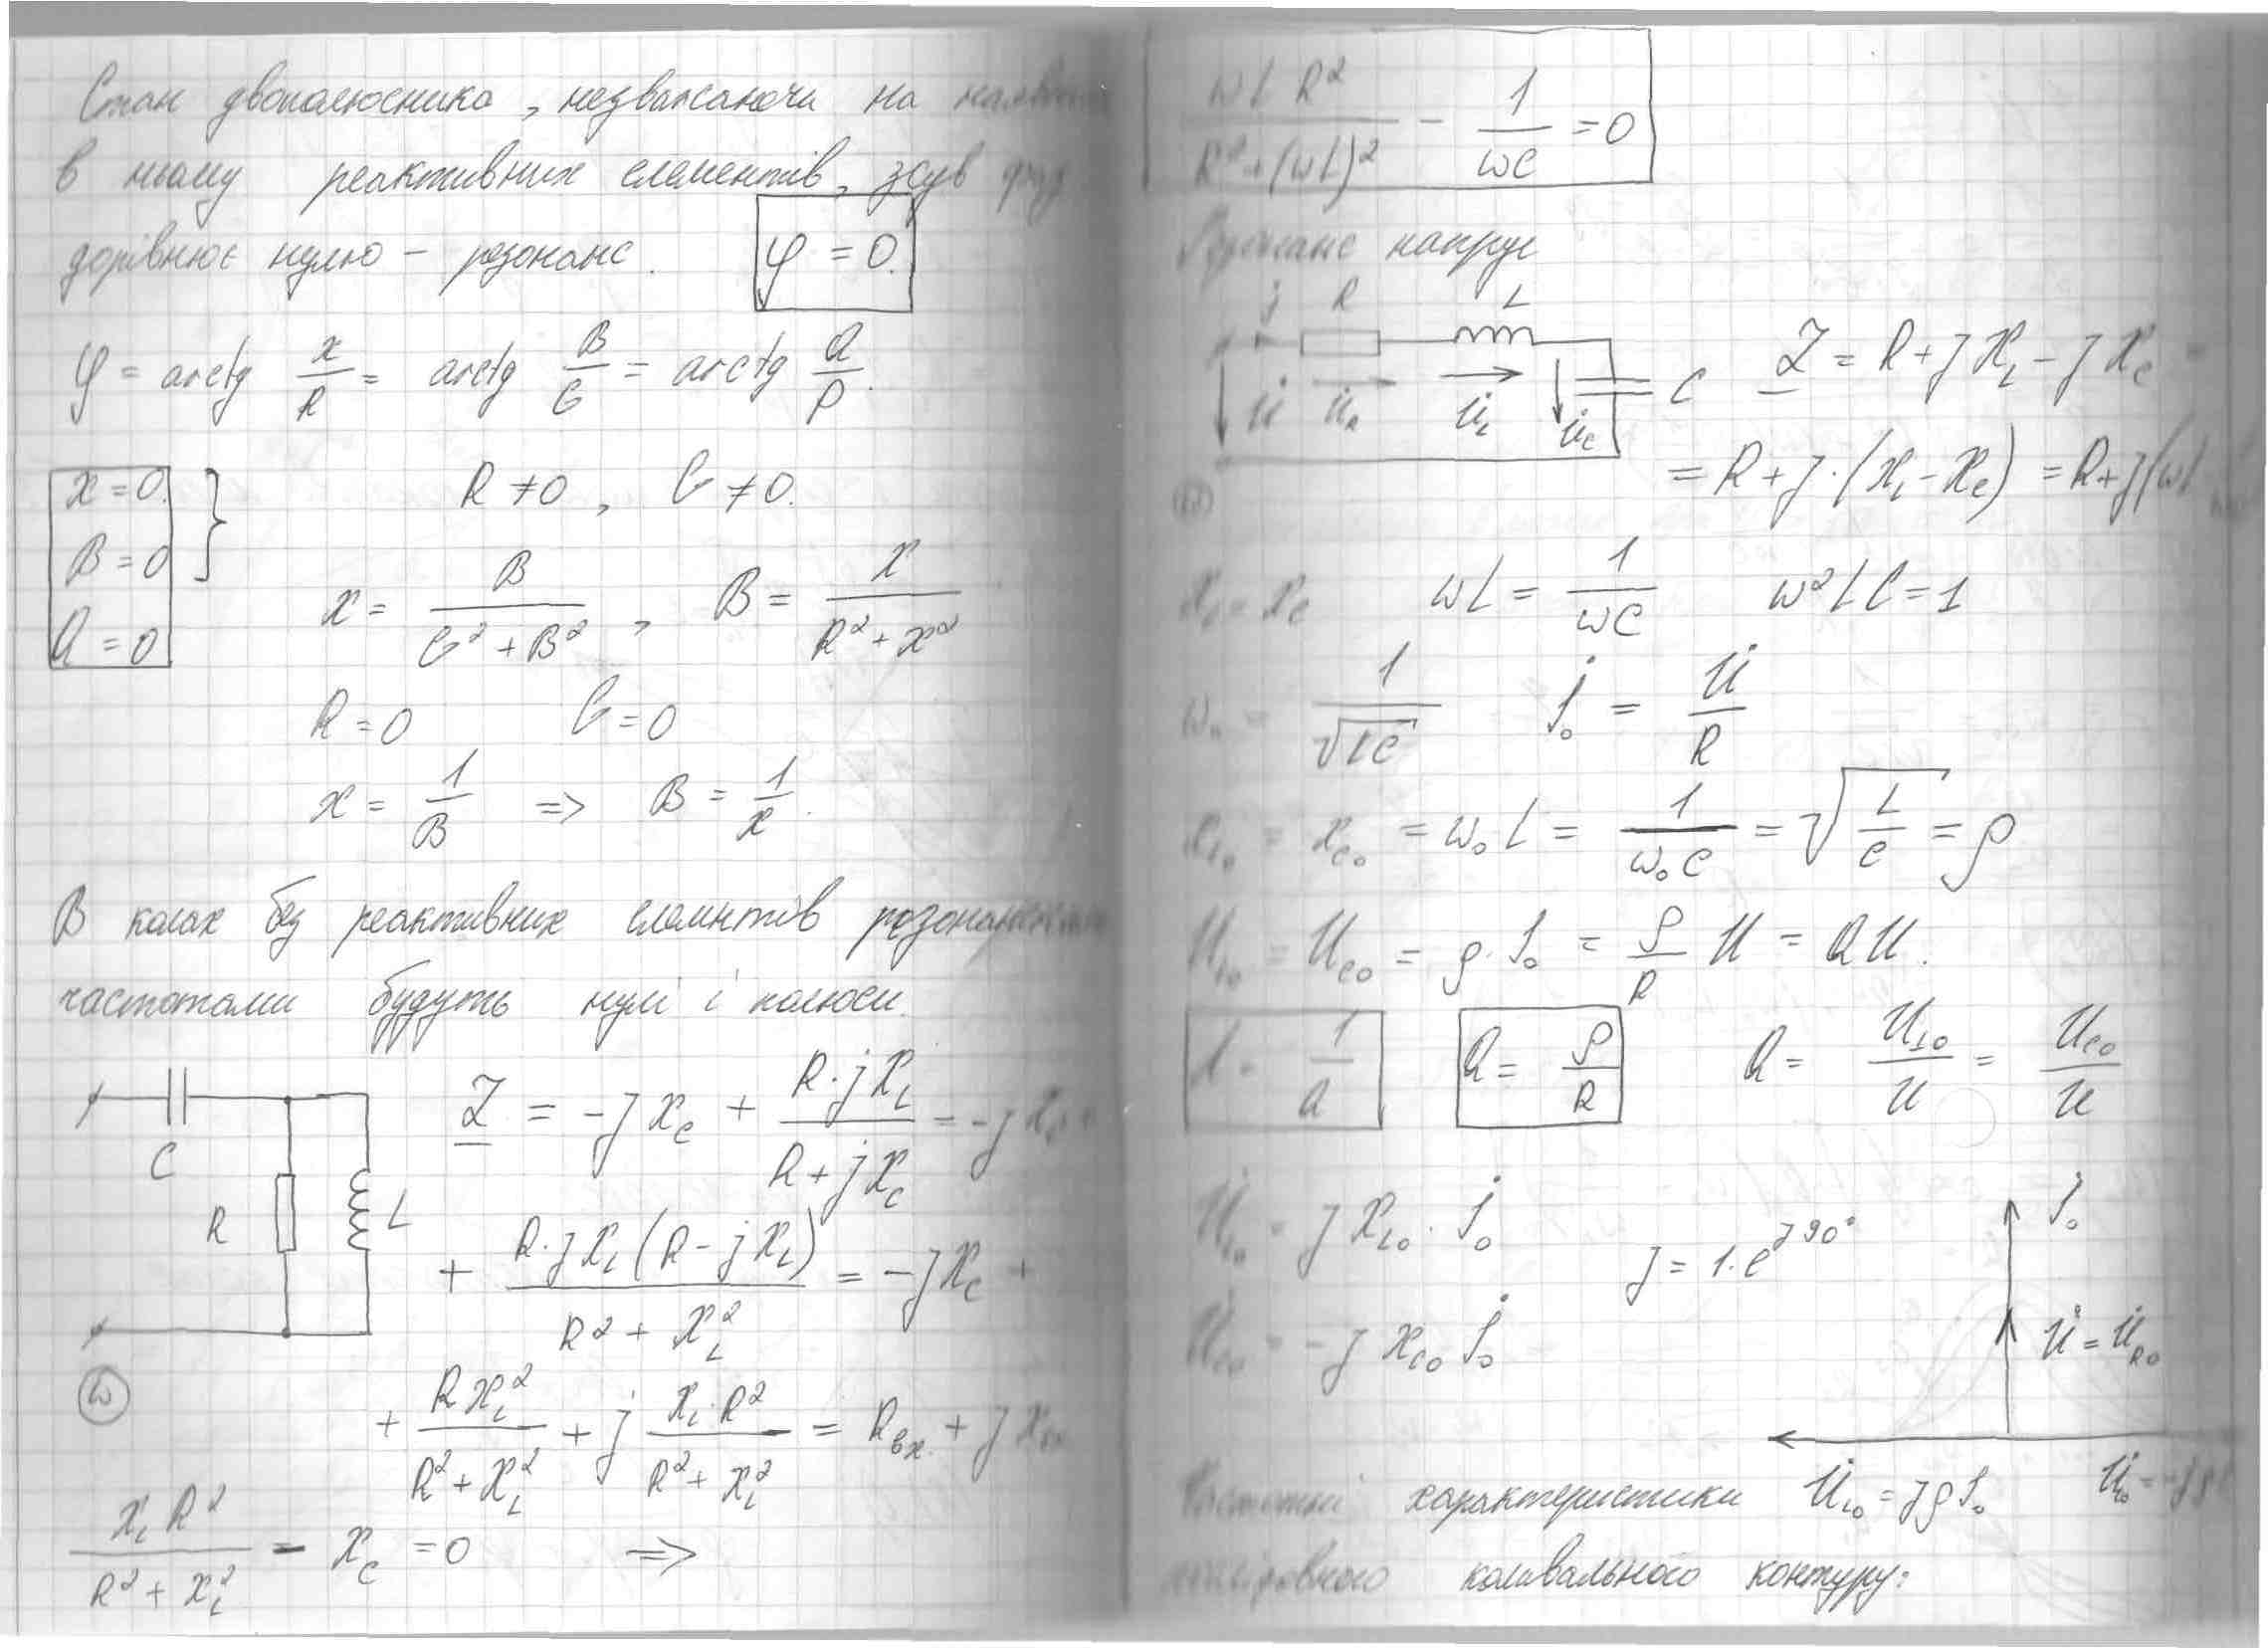 Стан двополюсника, незважаючи на
в ньому реактивних елементів, зсув фаз
дорівнює нулю – резонанс. φ = 0.
φ = arctg x/R = arctg B/G = arctg Q/P.
x = 0. R ≠ 0, G ≠ 0.
B = 0
Q = 0
x = B/(G² + B²), B = x/(R² + x²)
R = 0 G = 0
x = 1/B => B = 1/x.
В колах без реактивних елемнтів
частотами будуть нулі і полюси.
C R L
Z = -jx_C + R·jX_L/(R + jX_C) = -jx_C +
+ R·jX_L(R - jX_L)/(R² + X_L²) = -jX_C +
ω
+ RX_L²/(R² + X_L²) + j X_L·R²/(R² + X_L²) = R_вх. + jX_вх
X_L R²/(R² + X_L²) - X_C = 0 =>
ωLR²/(R² + (ωL)²) - 1/(ωC) = 0
Резонанс напруг
İ R L
U̇ U̇_R U̇_L U̇_C C
Z = R + jX_L - jX_C =
= R + j·(X_L - X_C) = R + j(ωL
ω
X_L = X_C ωL = 1/(ωC) ω²LC = 1
ω₀ = 1/√(LC) İ₀ = U̇/R
x_L0 = x_C0 = ω₀L = 1/(ω₀C) = √(L/C) = ρ
U_L0 = U_C0 = ρ·I₀ = ρ/R U = QU.
d = 1/Q Q = ρ/R Q = U_L0/U = U_C0/U
U̇_L0 = jX_L0·İ₀ j = 1·e^j90° İ₀
U̇_C0 = -jX_C0 İ₀ U̇ = U̇_R0
Частотні характеристики U̇_L0 = jρİ₀
коливального контуру: